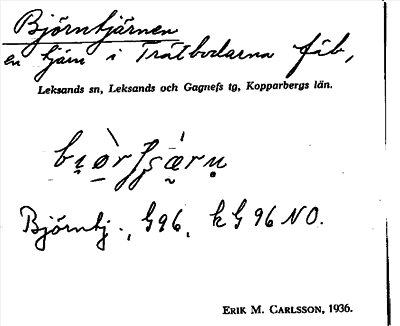 Björntjärnen
en tjärn i Trätbodarna fäb,
Leksands sn, Leksands och Gagnefs tg, Kopparbergs län.
Björntj., G96, k G 96 NO.
ERIK M. CARLSSON, 1936.